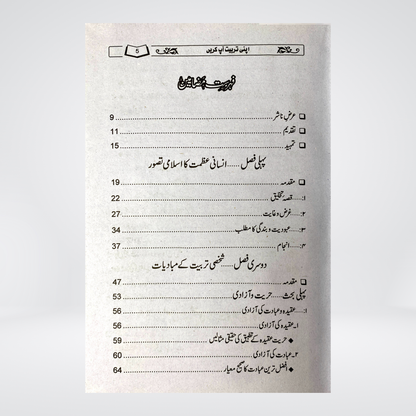 5 اپنی تربیت آپ کریں
فہرست مضامین
عرض ناشر 9
تقدیم 11
تمہید 15
پہلی فصل ..... انسانی عظمت کا اسلامی تصور
مقدمہ 19
۱۔ قصۂ تخلیق 22
۲۔ غرض و غایت 27
۳۔ عبودیت و بندگی کا مطلب 34
۴۔ انجام 37
دوسری فصل ..... شخصی تربیت کے مبادیات
مقدمہ 47
پہلی بحث ..... حریت و آزادی 53
۱۔ عقیدہ و عبادت کی آزادی 56
۱۔ عقیدہ کی آزادی 56
حریت عقیدہ کے تطبیق کی حقیقی مثالیں 59
۲۔ عبادت کی آزادی 60
افضل ترین عبادت کا صحیح معیار 64